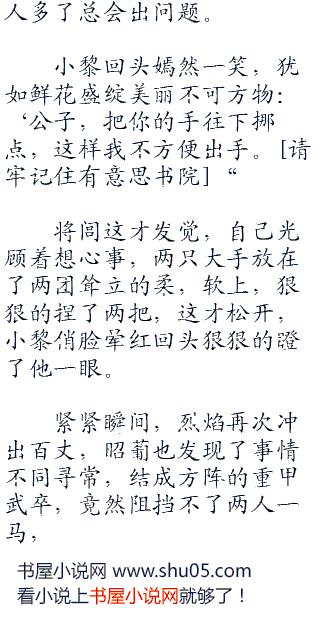 人多了总会出问题。
小黎回头嫣然一笑，犹
如鲜花盛绽美丽不可方物：
‘公子，把你的手往下挪
点，这样我不方便出手。[请
牢记住有意思书院]“
将闾这才发觉，自己光
顾着想心事，两只大手放在
了两团耸立的柔，软上，狠
狠的捏了两把，这才松开，
小黎俏脸晕红回头狠狠的瞪
了他一眼。
紧紧瞬间，烈焰再次冲
出百丈，昭蔔也发现了事情
不同寻常，结成方阵的重甲
武卒，竟然阻挡不了两人一
马，
书屋小说网 www.shu05.com
看小说上书屋小说网就够了！